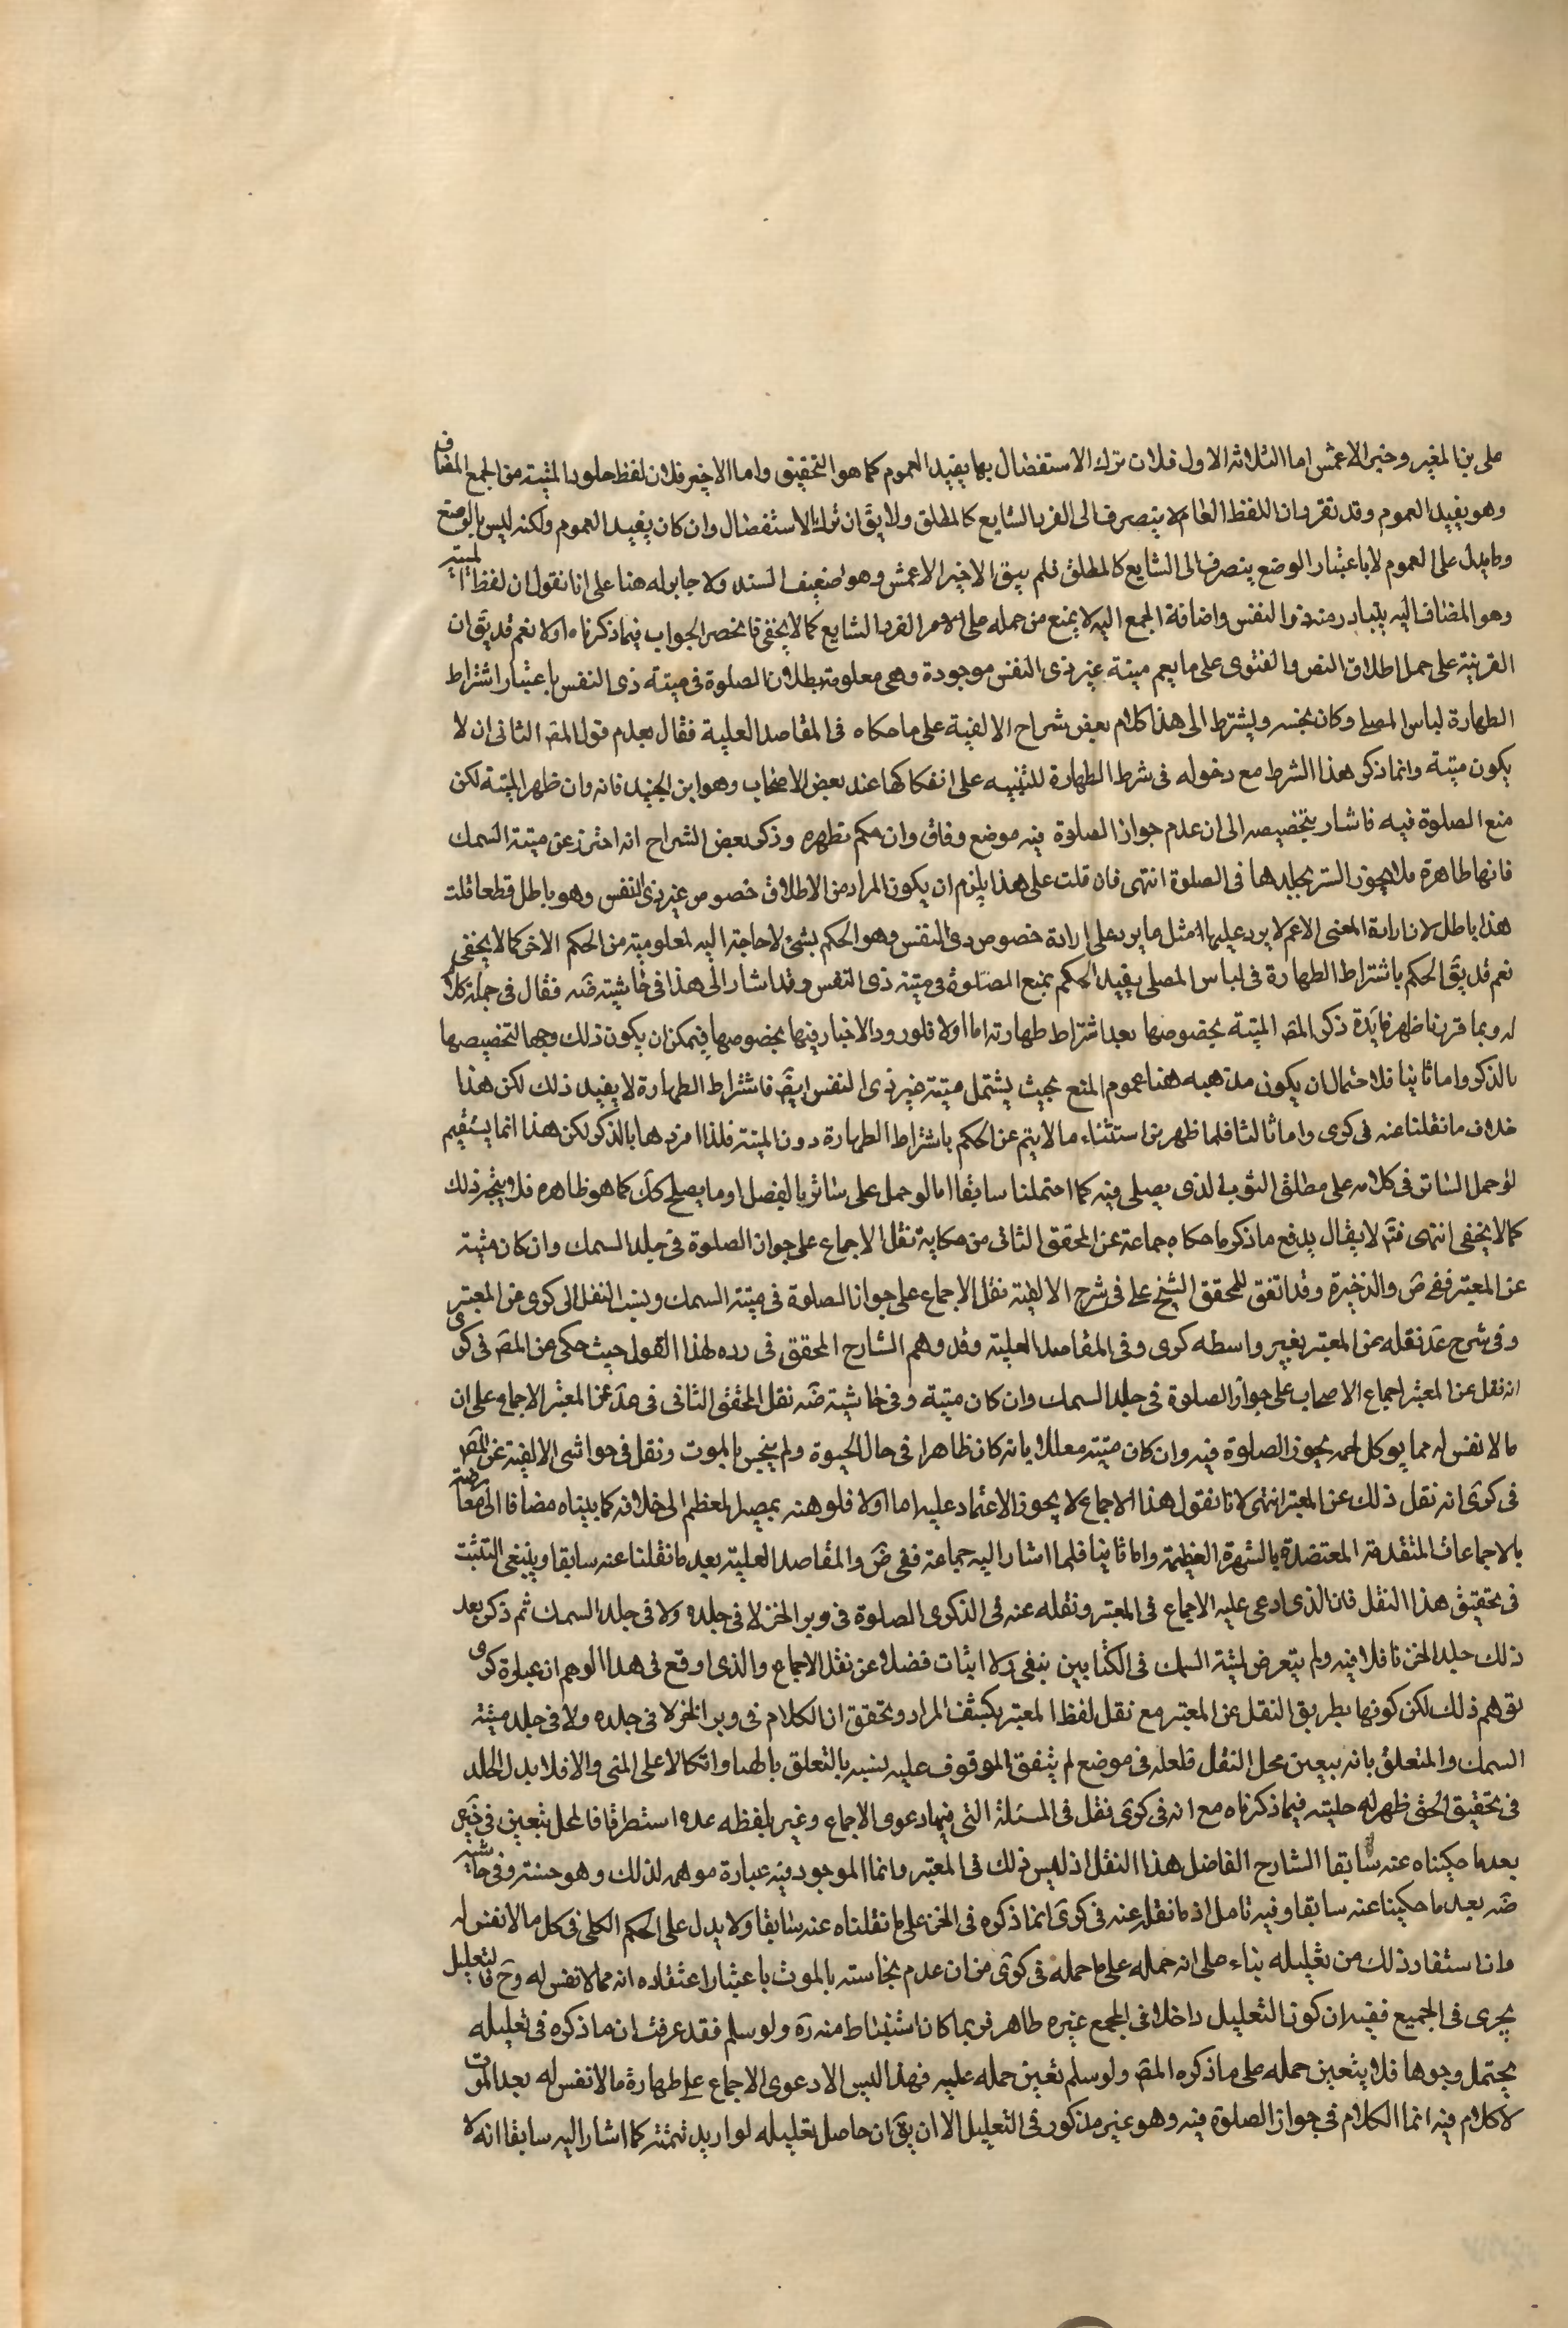 على بن المغيره وخبر الاعمش اما الثلاثة الاول فلان ترك الاستفصال بها يفيد العموم كما هو التحقيق واما الاخير فلان لفظ جلود الميتة من الجمع المضاف
وهو يفيد العموم وقد تقرر ان اللفظ العام لا ينصرف الى الفرد الشايع كالمطلق ولا يق ان ترك الاستفصال وان كان يفيد العموم ولكنه ليس بالوضع
وما يدل على العموم لا باعتبار الوضع ينصرف الى الشايع كالمطلق فلم يبق الا خبر الاعمش وهو ضعيف السند ولا جابر له هنا على انا نقول ان لفظ الميتة
وهو المضاف اليه يتبادر منه ذو النفس واضافة الجمع اليه لا يمنع من حمله على الفرد الشايع كما لا يخفى فانحصر الجواب فيما ذكرناه اولا نعم قد يق ان
القرينة على حمل اطلاق النص والفتوى على ما يعم ميتة غير ذى النفس موجودة وهى معلومية بطلان الصلوة فى ميتة ذى النفس باعتبار اشتراط
الطهارة لباس المصلى وكان بجنسه ويشترط الى هذا كلام بعض شراح الالفية على ما حكاه فى المقاصد العلية فقال بعد قول المص الثانى ان لا
يكون ميتة وانما ذكر هذا الشرط مع دخوله فى شرط الطهارة للتنبيه على انفكاكها عند بعض الاصحاب وهو ابن الجنيد فانه وان طهر الميتة لكن
منع الصلوة فيه فاشار بتخصيصه الى ان عدم جواز الصلوة فيه موضع وفاق وان حكم بطهره وذكر بعض الشراح انه احترز عن ميتة السمك
فانها طاهرة فلا يجوز الستر بجلدها فى الصلوة انتهى فان قلت على هذا يلزم ان يكون المراد من الاطلاق خصوص غير ذى النفس وهو باطل قطعا قلت
هذا باطل لان ارادة المعنى الاعم لا يرد عليها مثل ما يرد على ارادة خصوص ذى النفس وهو الحكم بشئ لا حاجة اليه لمعلوميته من الحكم الاخر كما لا يخفى
نعم قد يق الحكم باشتراط الطهارة فى لباس المصلى يفيد الحكم بمنع الصلوة فى ميتة ذى النفس وقد اشار الى هذا فى حاشية ضه فقال فى جملة كلام
له وبما قررنا ظهر فايدة ذكر المص الميتة بخصوصها بعد اشتراط طهارته اما اولا فلورود الاخبار فيها بخصوصها فيمكن ان يكون ذلك وجها لتخصيصها
بالذكر واما ثانيا فلاحتمال ان يكون مذهبه هنا عموم المنع بحيث يشتمل ميتة غير ذى النفس ايضَ فاشتراط الطهارة لا يفيد ذلك لكن هذا
خلاف ما نقلنا عنه فى كرى واما ثالثا فلما ظهر من استثناء ما لا يتم عن الحكم باشتراط الطهارة دون الميتة فلذا افردها بالذكر لكن هذا انما يستقيم
لو حمل الساتر فى كلامه على مطلق الثوب الذى يصلى فيه كما احتملنا سابقا اما لو حمل على ساتر بالفصل او ما يصلح كك كما هو ظاهره فلا يتجه ذلك
كما لا يخفى انتهى فتَم لا يقال يدفع ما ذكر ما حكاه جماعة عن المحقق الثانى من حكاية نقل الاجماع على جواز الصلوة فى جلد السمك وان كان ميتة
عن المعتبر ففى ضَ والذخيرة وقد اتفق للمحقق الشيخ على فى شرح الالفية نقل الاجماع على جواز الصلوة فى ميتة السمك ونسب النقل الى كرى من المعتبر
وفى شرح عَد نقله عن المعتبر بغير واسطه كرى وفى المقاصد العلية وقد وهم الشارح المحقق فى رده لهذا القول حيث حكى عن المصَ فى كرى
انه نقل عن المعتبر اجماع الاصحاب على جواز الصلوة فى جلد السمك وان كان ميتة وفى حاشية ضَه نقل المحقق الثانى فى عدَ عن المعتبر الاجماع على ان
ما لا نفس له مما يوكل لحمه يجوز الصلوة فيه وان كان ميتة معللا بانه كان طاهرا فى حال الحيوة ولم ينجس بالموت ونقل فى حواشى الالفية عن المص
فى كرى انه نقل ذلك عن المعتبر انتهى لانا نقول هذا الاجماع لا يجوز الاعتماد عليه اما اولا فلوهنه بمصير المعظم الى خلافه كما بيناه مضافا الى معارضته
بالاجماعات المتقدمة المعتضدة بالشهرة العظيمة واما ثانيا فلما اشار اليه جماعة ففى ضَ والمقاصد العلية بعد ما نقلنا عنه سابقا وينبغى التثبت
فى تحقيق هذا النقل فان الذى ادعى عليه الاجماع فى المعتبر ونقله عنه فى الذكرى الصلوة فى وبر الخز لا فى جلده ولا فى جلد السمك ثم ذكر بعد
ذلك جلد الخز ناقلا فيه ولم يتعرض لميتة السمك فى الكتابين بنفى ولا اثبات فضلا عن نقل الاجماع والذى اوقع فى هذا الوهم ان عبارة كرى
توهم ذلك لكن كونها بطريق النقل عن المعتبر مع نقل لفظ المعتبر يكشف المراد وتحقق ان الكلام فى وبر الخز لا فى جلده ولا فى جلد ميتة
السمك والمتعلق بانه يتعين محل النقل فلعله فى موضع لم يتفق الوقوف عليه لنسبه بالتعلق بالهباء واتكالا على المنى والا فلا بد للخلد
فى تحقيق الحق ظهر له جليته فيما ذكرناه مع انه فى كرى نقل فى المسئلة التى فيها دعوى الاجماع وغير بلفظه عده استطرقا فالمحل يتعين فى خَيره
بعد ما حكيناه عنه سابقا الشارح الفاضل هذا النقل اذ ليس ذلك فى المعتبر وانما الموجود فيه عبارة موهمه لذلك وهو حسنة وفى حاشية
ضَه بعد ما حكينا عنه سابقا وفيه تامل اذ ما نقل عنه فى كرى انما ذكره فى الخز على ما نقلناه عنه سابقا ولا يدل على الحكم الكلى فى كل ما لا نفس له
وان استفاد ذلك من تعليله بناء على انه حمله على ما حمله فى كرى من ان عدم نجاسته بالموت باعتبار اعتقاده انه مما لا نفس له وحَ فالتعليل
يجرى فى الجميع ففيه ان كون التعليل داخلا فى المجمع غيره ظاهر فربما كان استنباط منه ره ولو سلم فقد عرفت ان ما ذكره فى تعليله
يحتمل وجوها فلا يتعين حمله على ما ذكره المص ولو سلم تعين حمله عليه فهذا ليس الا دعوى الاجماع على طهارة ما لا نفس له بعد الموت
لا كلام فيه انما الكلام فى جواز الصلوة فيه وهو غير مذكور فى التعليل الا ان يق ان حاصل تعليله لو اريد تتمته كما اشار اليه سابقا انه لا